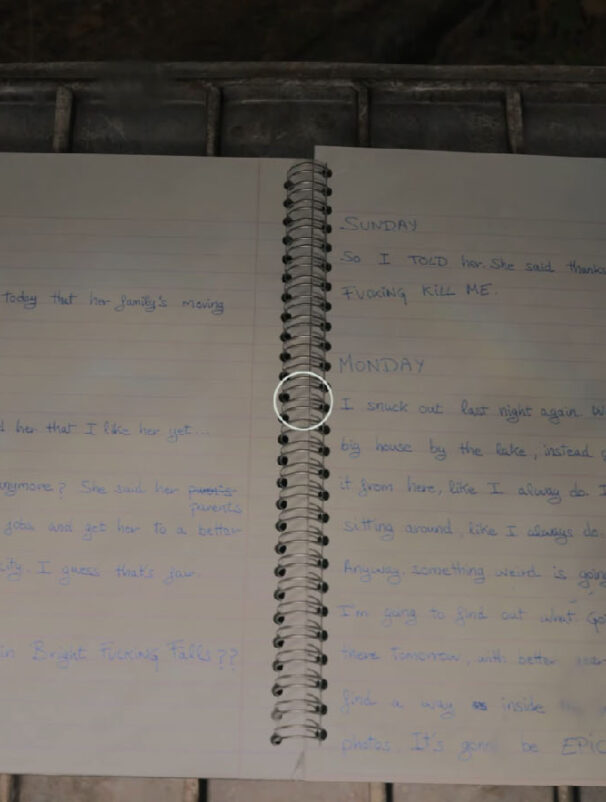 today that her family's moving
her that I like her yet...
anymore? She said her parents
parents
jobs and get her to a better
city. I guess that's fair.
in Bright FUCKING Falls??
SUNDAY
So I TOLD her. She said thanks
FUCKING KILL ME.
MONDAY
I snuck out last night again. W
big house by the lake, instead
it from here, like I alway do. I
sitting around, like I always do.
Anyway, something weird is going
I'm going to find out what. Go
there tomorrow, with better
find a way inside
photos. It's gonna be EPIC